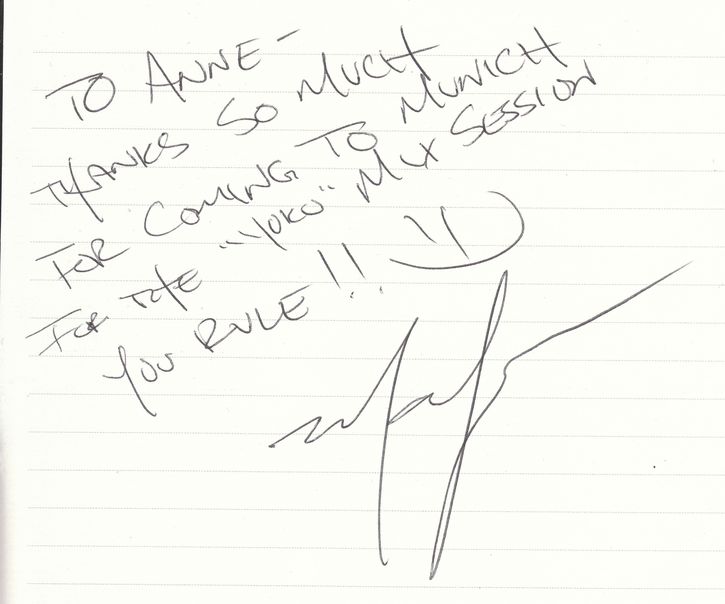 TO ANNE -
THANKS SO MUCH
FOR COMING TO MUNICH
FOR THE "YOKO" MIX SESSION
YOU RULE!!